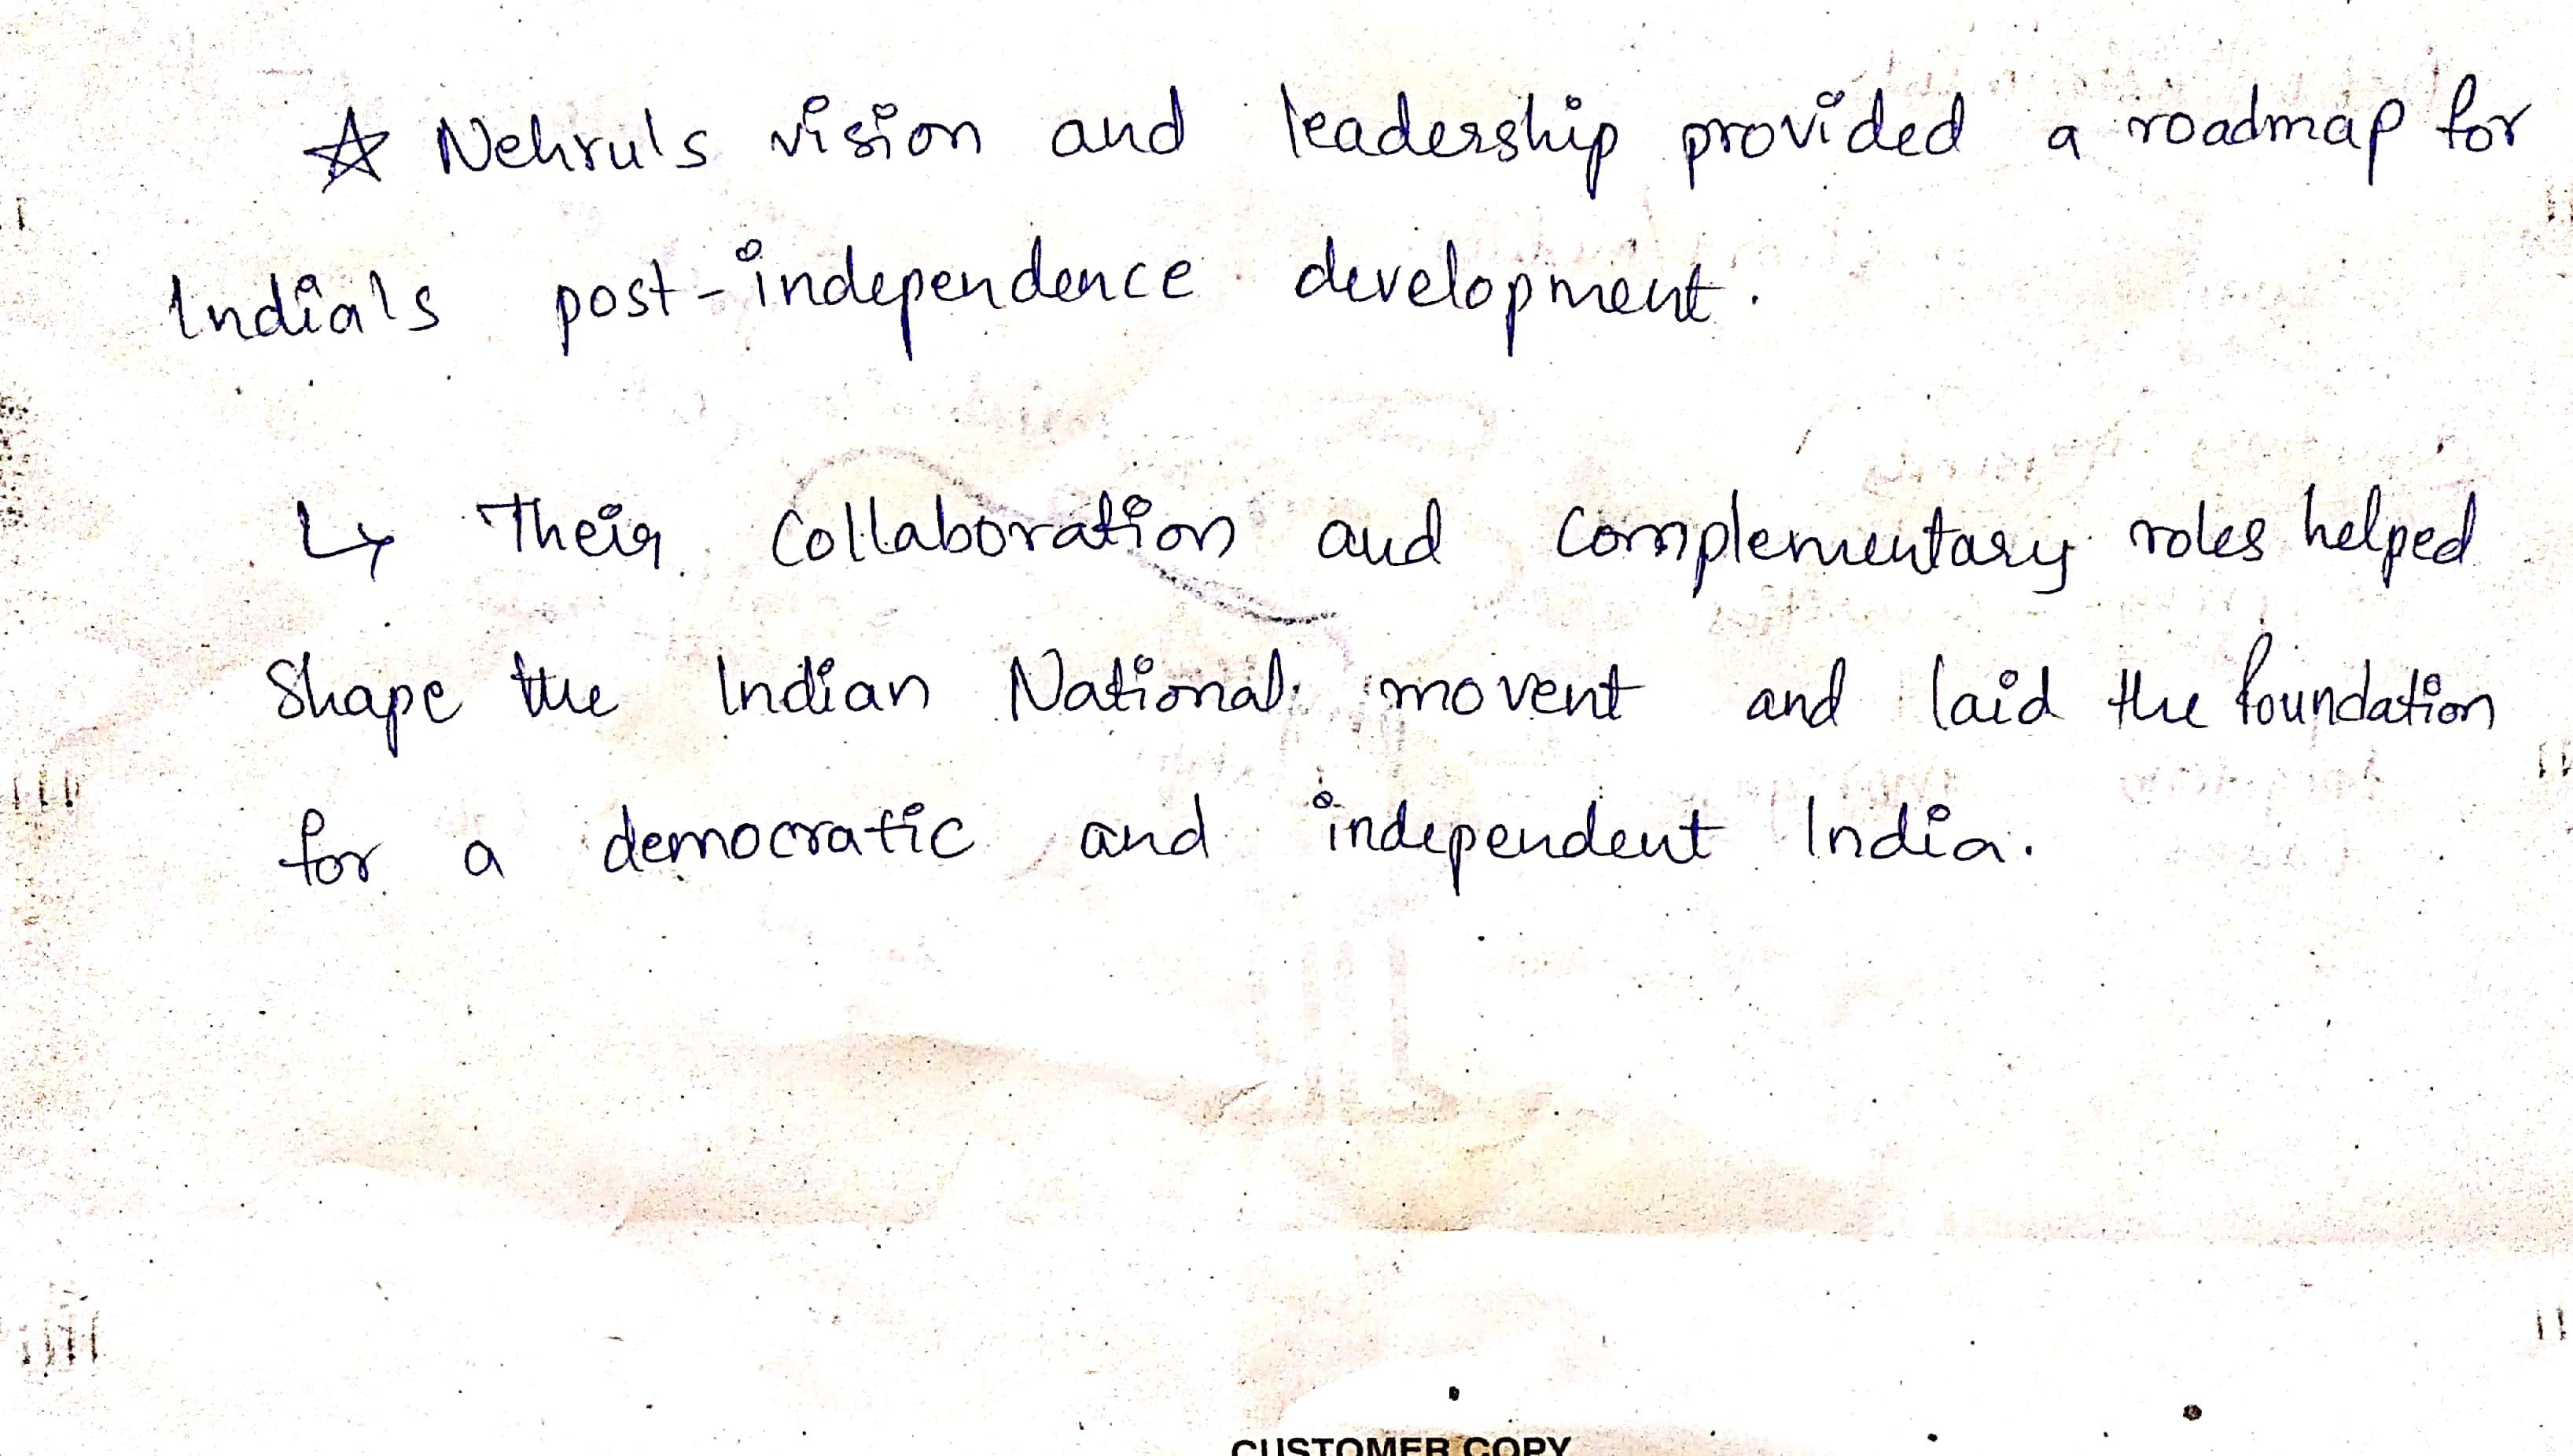 ☆ Nehru's vision and leadership provided a roadmap for
India's post-independence development.
↳ Their collaboration and complementary roles helped
shape the Indian National movent and laid the foundation
for a democratic and independent India.
CUSTOMER COPY